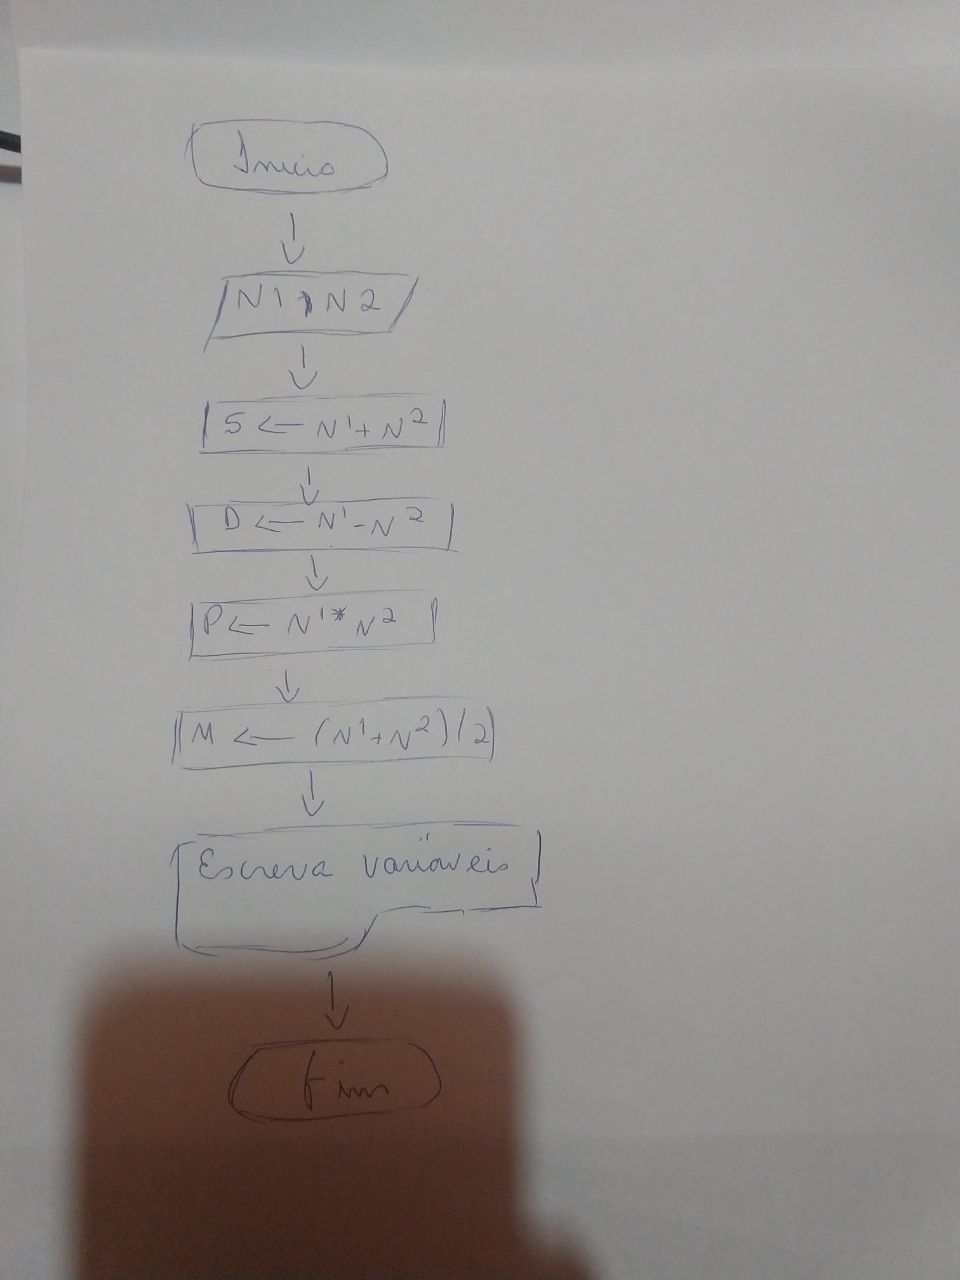 Inicio
N1, N2
S ← N1 + N2
D ← N1 - N2
P ← N1 * N2
M ← (N1 + N2) / 2
Escreva variáveis
Fim